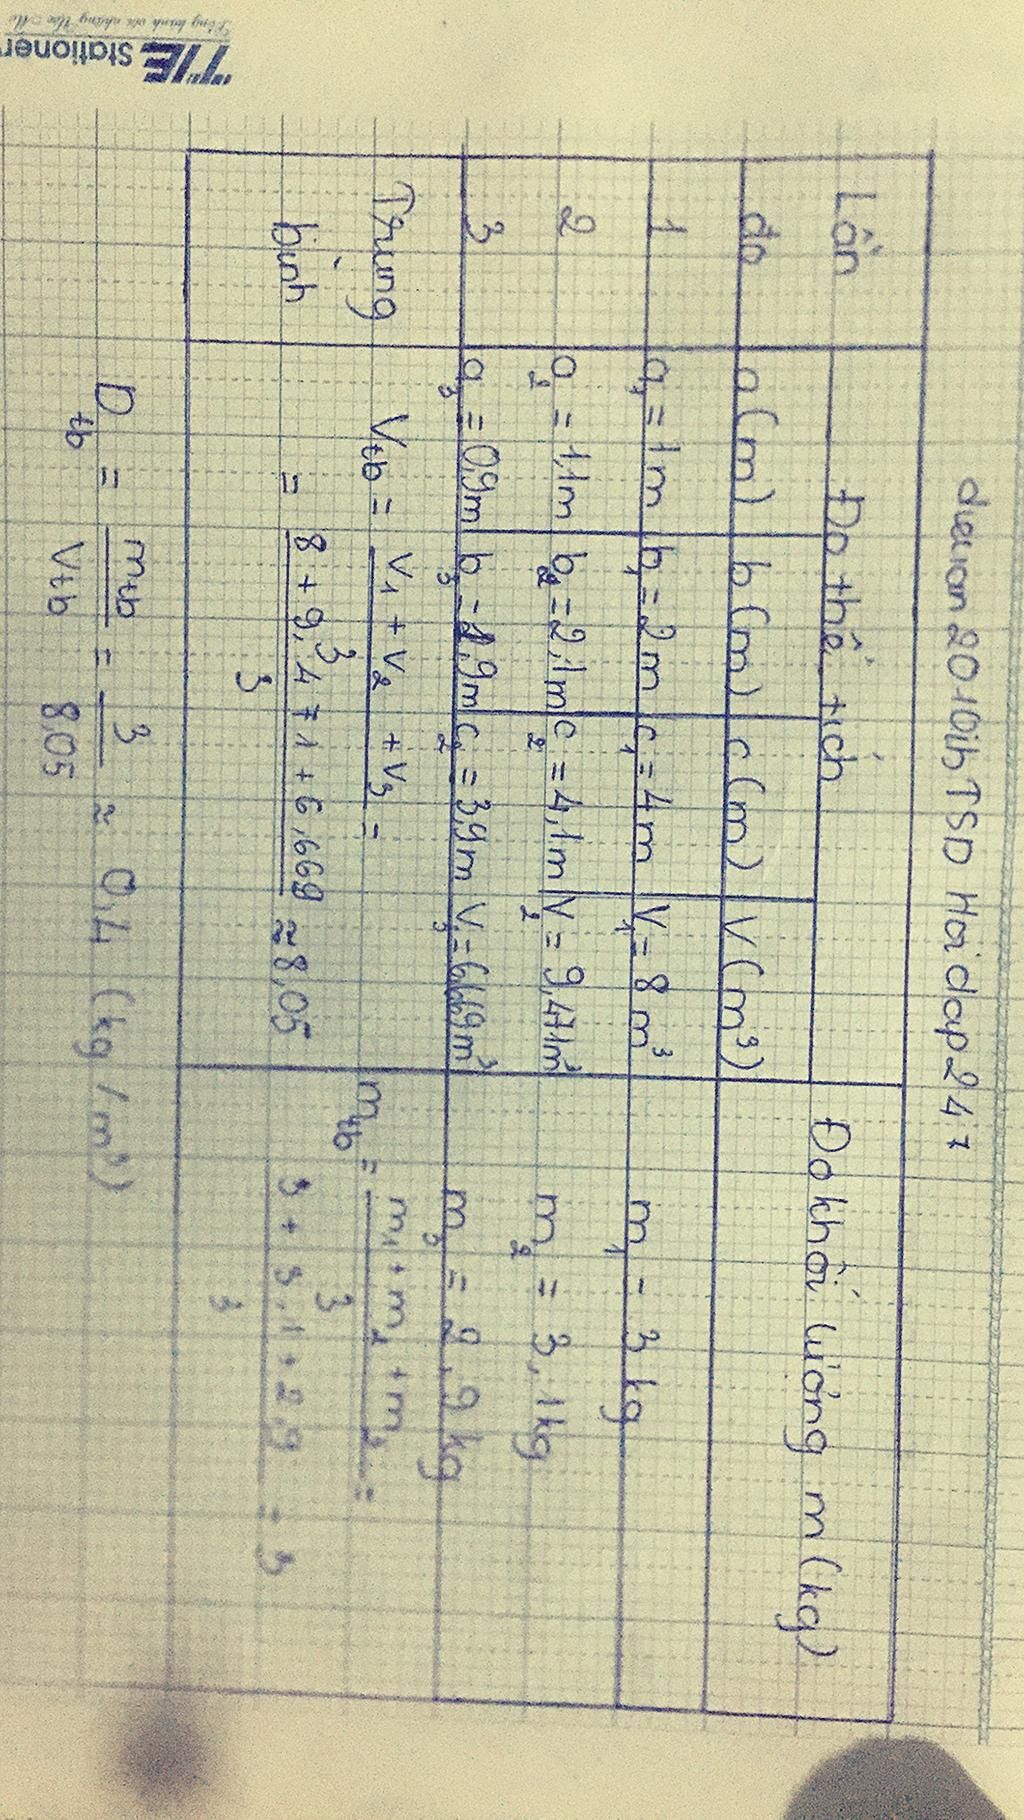 diexuan2010ihTSD Hoidap247
Lần đo
Đo thể tích
Đo khối lượng m (kg)
a(m) b(m) c(m) V(m³)
1 a₁ = 1m b₁ = 2m c₁ = 4m V₁ = 8 m³ m₁ = 3 kg
2 a₂ = 1,1m b₂ = 2,1m c₂ = 4,1m V₂ = 9,471m³ m₂ = 3,1kg
3 a₃ = 0,9m b₃ = 1,9m c₃ = 3,9m V₃ = 6,669m³ m₃ = 2,9 kg
Trung bình
Vtb = V₁ + V₂ + V₃ / 3 =
= 8 + 9,471 + 6,669 / 3 ≈ 8,05
mtb = m₁ + m₂ + m₃ / 3 =
3 + 3,1 + 2,9 / 3 = 3
Dtb = mtb / Vtb = 3 / 8,05 ≈ 0,4 (kg/m³)
TIE Stationer